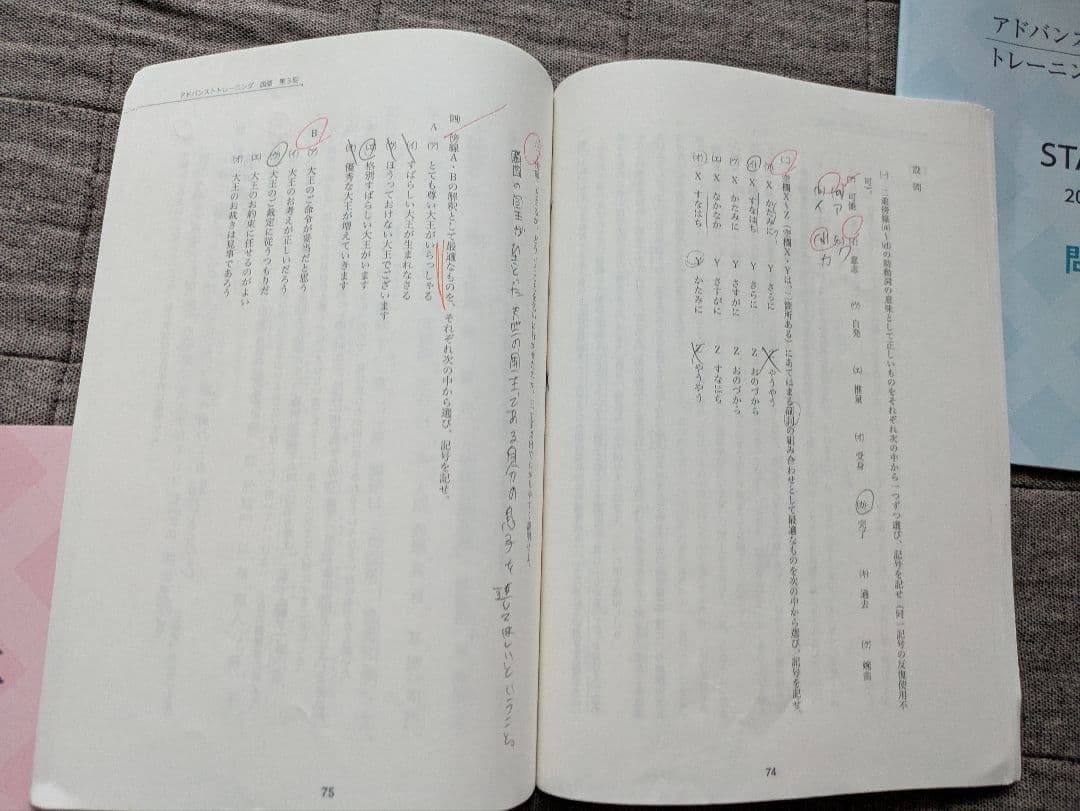 設問
㈠ 二重傍線(a)〜(d)の助動詞の意味として正しいものをそれぞれ次の中から一つずつ選び、記号を記せ(同一記号の反復使用不
可)。
(ア) 可能
(イ) 意志
(ウ) 自発
(エ) 推量
(オ) 受身
(カ) 完了
(キ) 過去
(ク) 婉曲
(a) ア
(b) イ
(c) ク
(d) カ
㈡ 空欄X〜Z(空欄X・Yは、二箇所ある)にあてはまる副詞の組み合わせとして最適なものを次の中から選び、記号を記せ。
(ア) X かたみに Y さらに Z やうやう
(イ) X すなはち Y さらに Z おのづから
(ウ) X かたみに Y さすがに Z おのづから
(エ) X なかなか Y さすがに Z すなはち
(オ) X すなはち Y かたみに Z やうやう
74
アドバンストトレーニング 国語 第3版
の国王が
の国王である自分の息子を
してほしいということ。
㈣ 傍線A・Bの解釈として最適なものを、それぞれ次の中から選び、記号を記せ。
A
(ア) とても尊い大王がいらっしゃる
(イ) すばらしい大王が生まれなさる
(ウ) ほうっておけない大王でございます
(エ) 格別すばらしい大王がいます
(オ) 優秀な大王が増えていきます
B
(ア) 大王のご命令が妥当だと思う
(イ) 大王のお考えが正しいだろう
(ウ) 大王のご裁定に従うつもりだ
(エ) 大王のお約束に任せるのがよい
(オ) 大王のお裁きは見事であろう
75
アドバンス
トレーニン
STA
20
問